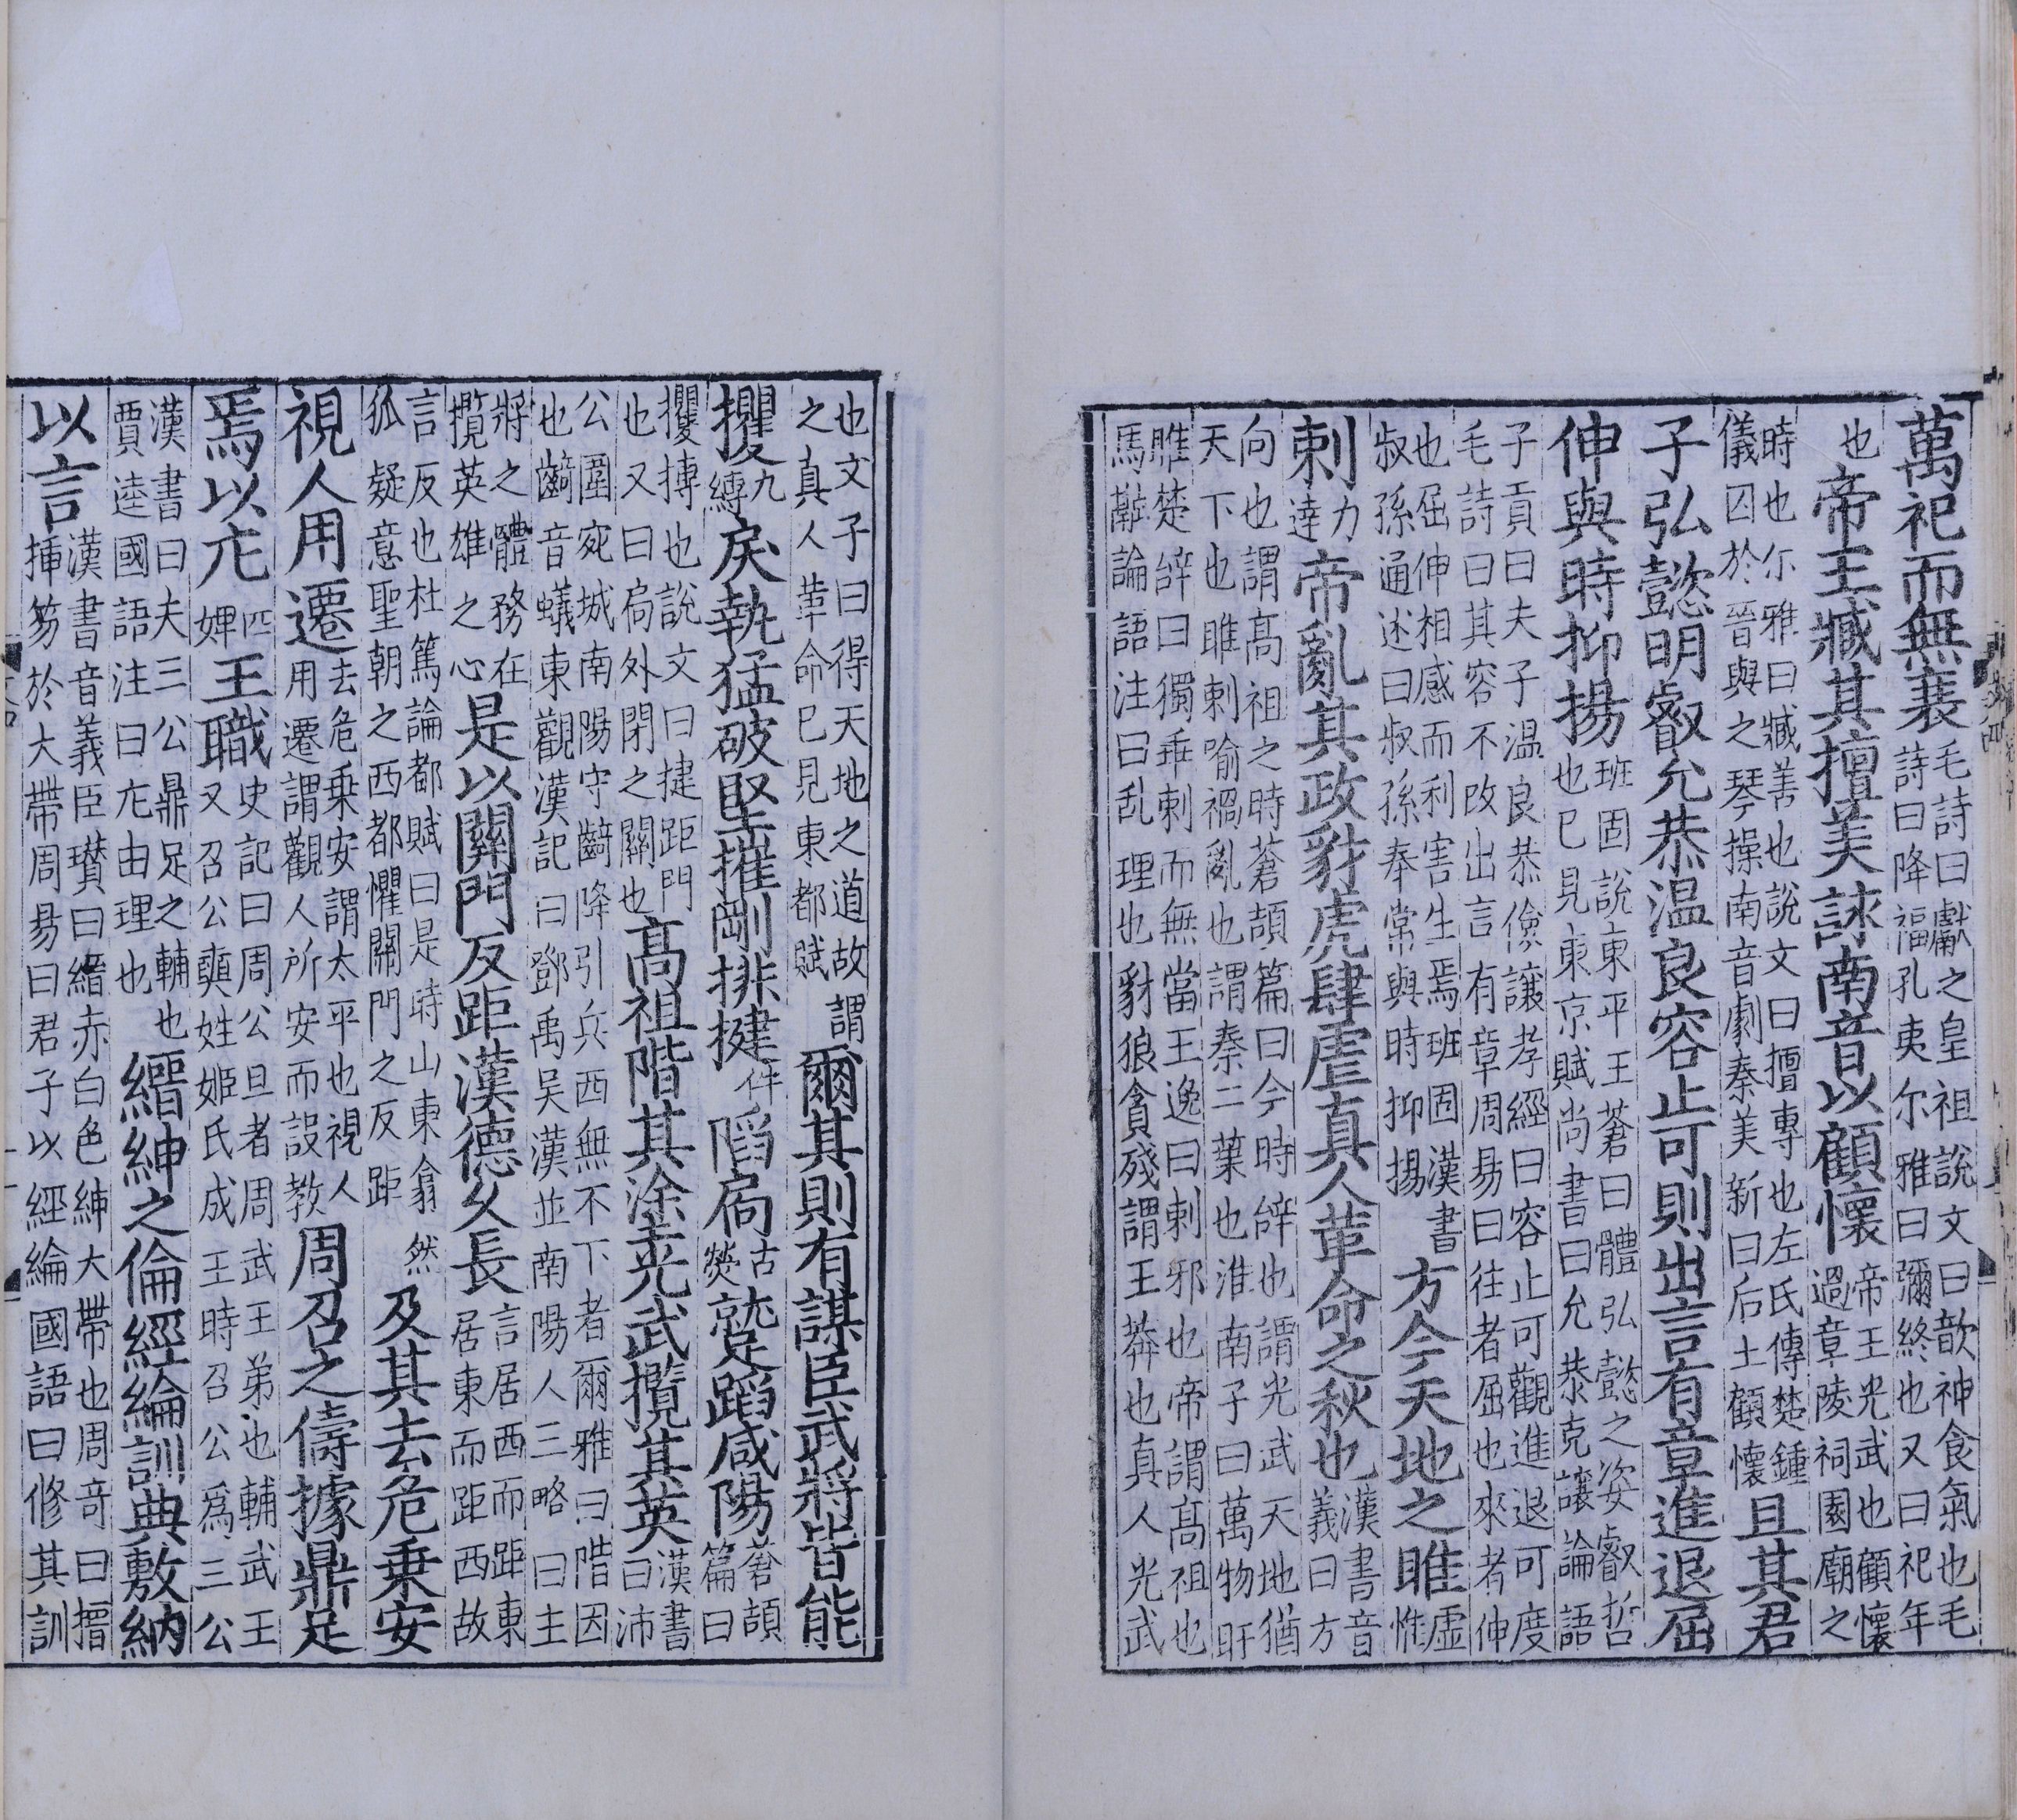 萬祀而無衰毛詩曰獻之皇祖說文曰歆神食氣也毛詩曰降福孔夷尔雅曰彌終也又曰祀年
也帝王臧其擅美詠南音以顧懷過章陵祠園廟之帝王光武也顧懷
時也尓雅曰臧善也說文曰擅專也左氏傳楚鍾儀囚於晉與之琴操南音劇秦美新曰后土顧懷且其君
子弘懿明叡允恭温良容止可則出言有章進退屈
伸與時抑揚班固說東平王蒼曰體弘懿之姿叡哲也已見東京賦尚書曰允恭克讓論語
子貢曰夫子温良恭儉讓孝經曰容止可觀進退可度毛詩曰其容不改出言有章周易曰往者屈也來者伸
也屈伸相感而利害生焉班固漢書叔孫通述曰叔孫奉常與時抑揚方今天地之睢虛惟
剌力達帝亂其政豺虎肆虐真人革命之秋也漢書音義曰方
向也謂髙祖之時蒼頡篇曰今時辝也謂光武天地猶天下也睢剌喻禍亂也謂秦二葉也淮南子曰萬物盱
睢楚辝曰獨乖剌而無當王逸曰剌邪也帝謂髙祖也馬融論語注曰乱理也豺狼貪殘謂王莽也真人光武
也文子曰得天地之道故謂之真人革命已見東都賦爾其則有謀臣武將皆能
攫九縛戾執猛破堅摧剛排揵件䧟扄古熒蹵蹈咸陽蒼頡篇曰
攫摶也說文曰揵距門也又曰扄外閉之關也髙祖階其塗光武攬其英漢書曰沛
公圍宛城南陽守齮降引兵西無不下者爾雅曰階因也齮音蟻東觀漢記曰鄧禹吴漢並南陽人三略曰主
將之體務在攬英雄之心是以關門反距漢德乆長言居西而距東居東而距西故
言反也杜篤論都賦曰是時山東翕然狐疑意聖朝之西都懼關門之反距及其去危乗安
視人用遷去危乗安謂太平也視人用遷謂觀人所安而設教周召之儔據鼎足
焉以庀匹婢王職史記曰周公旦者周武王弟也輔武王又召公奭姓姬氏成王時召公爲三公
漢書曰夫三公鼎足之輔也賈逵國語注曰庀由理也縉紳之倫經綸訓典敷納
以言漢書音義臣瓉曰縉赤白色紳大帶也周竒曰搢揷笏於大帶周易曰君子以經綸國語曰修其訓